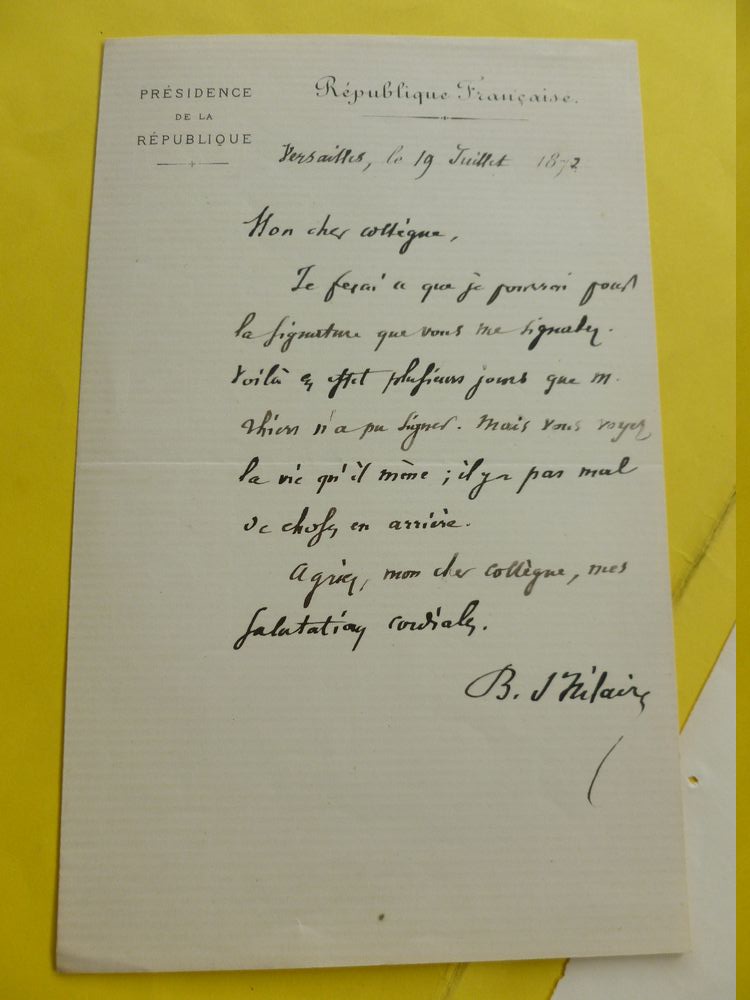 PRÉSIDENCE
DE LA
RÉPUBLIQUE
République Française.
Versailles, le 19 Juillet 1872
Mon cher collègue,
Je ferai ce que je pourrai pour
la signature que vous me signalez.
Voilà en effet plusieurs jours que m.
Thiers n'a pu signer. Mais vous voyez
la vie qu'il mène ; il y a pas mal
de choses en arrière.
Agréez, mon cher collègue, mes
salutations cordiales.
B. St Hilaire